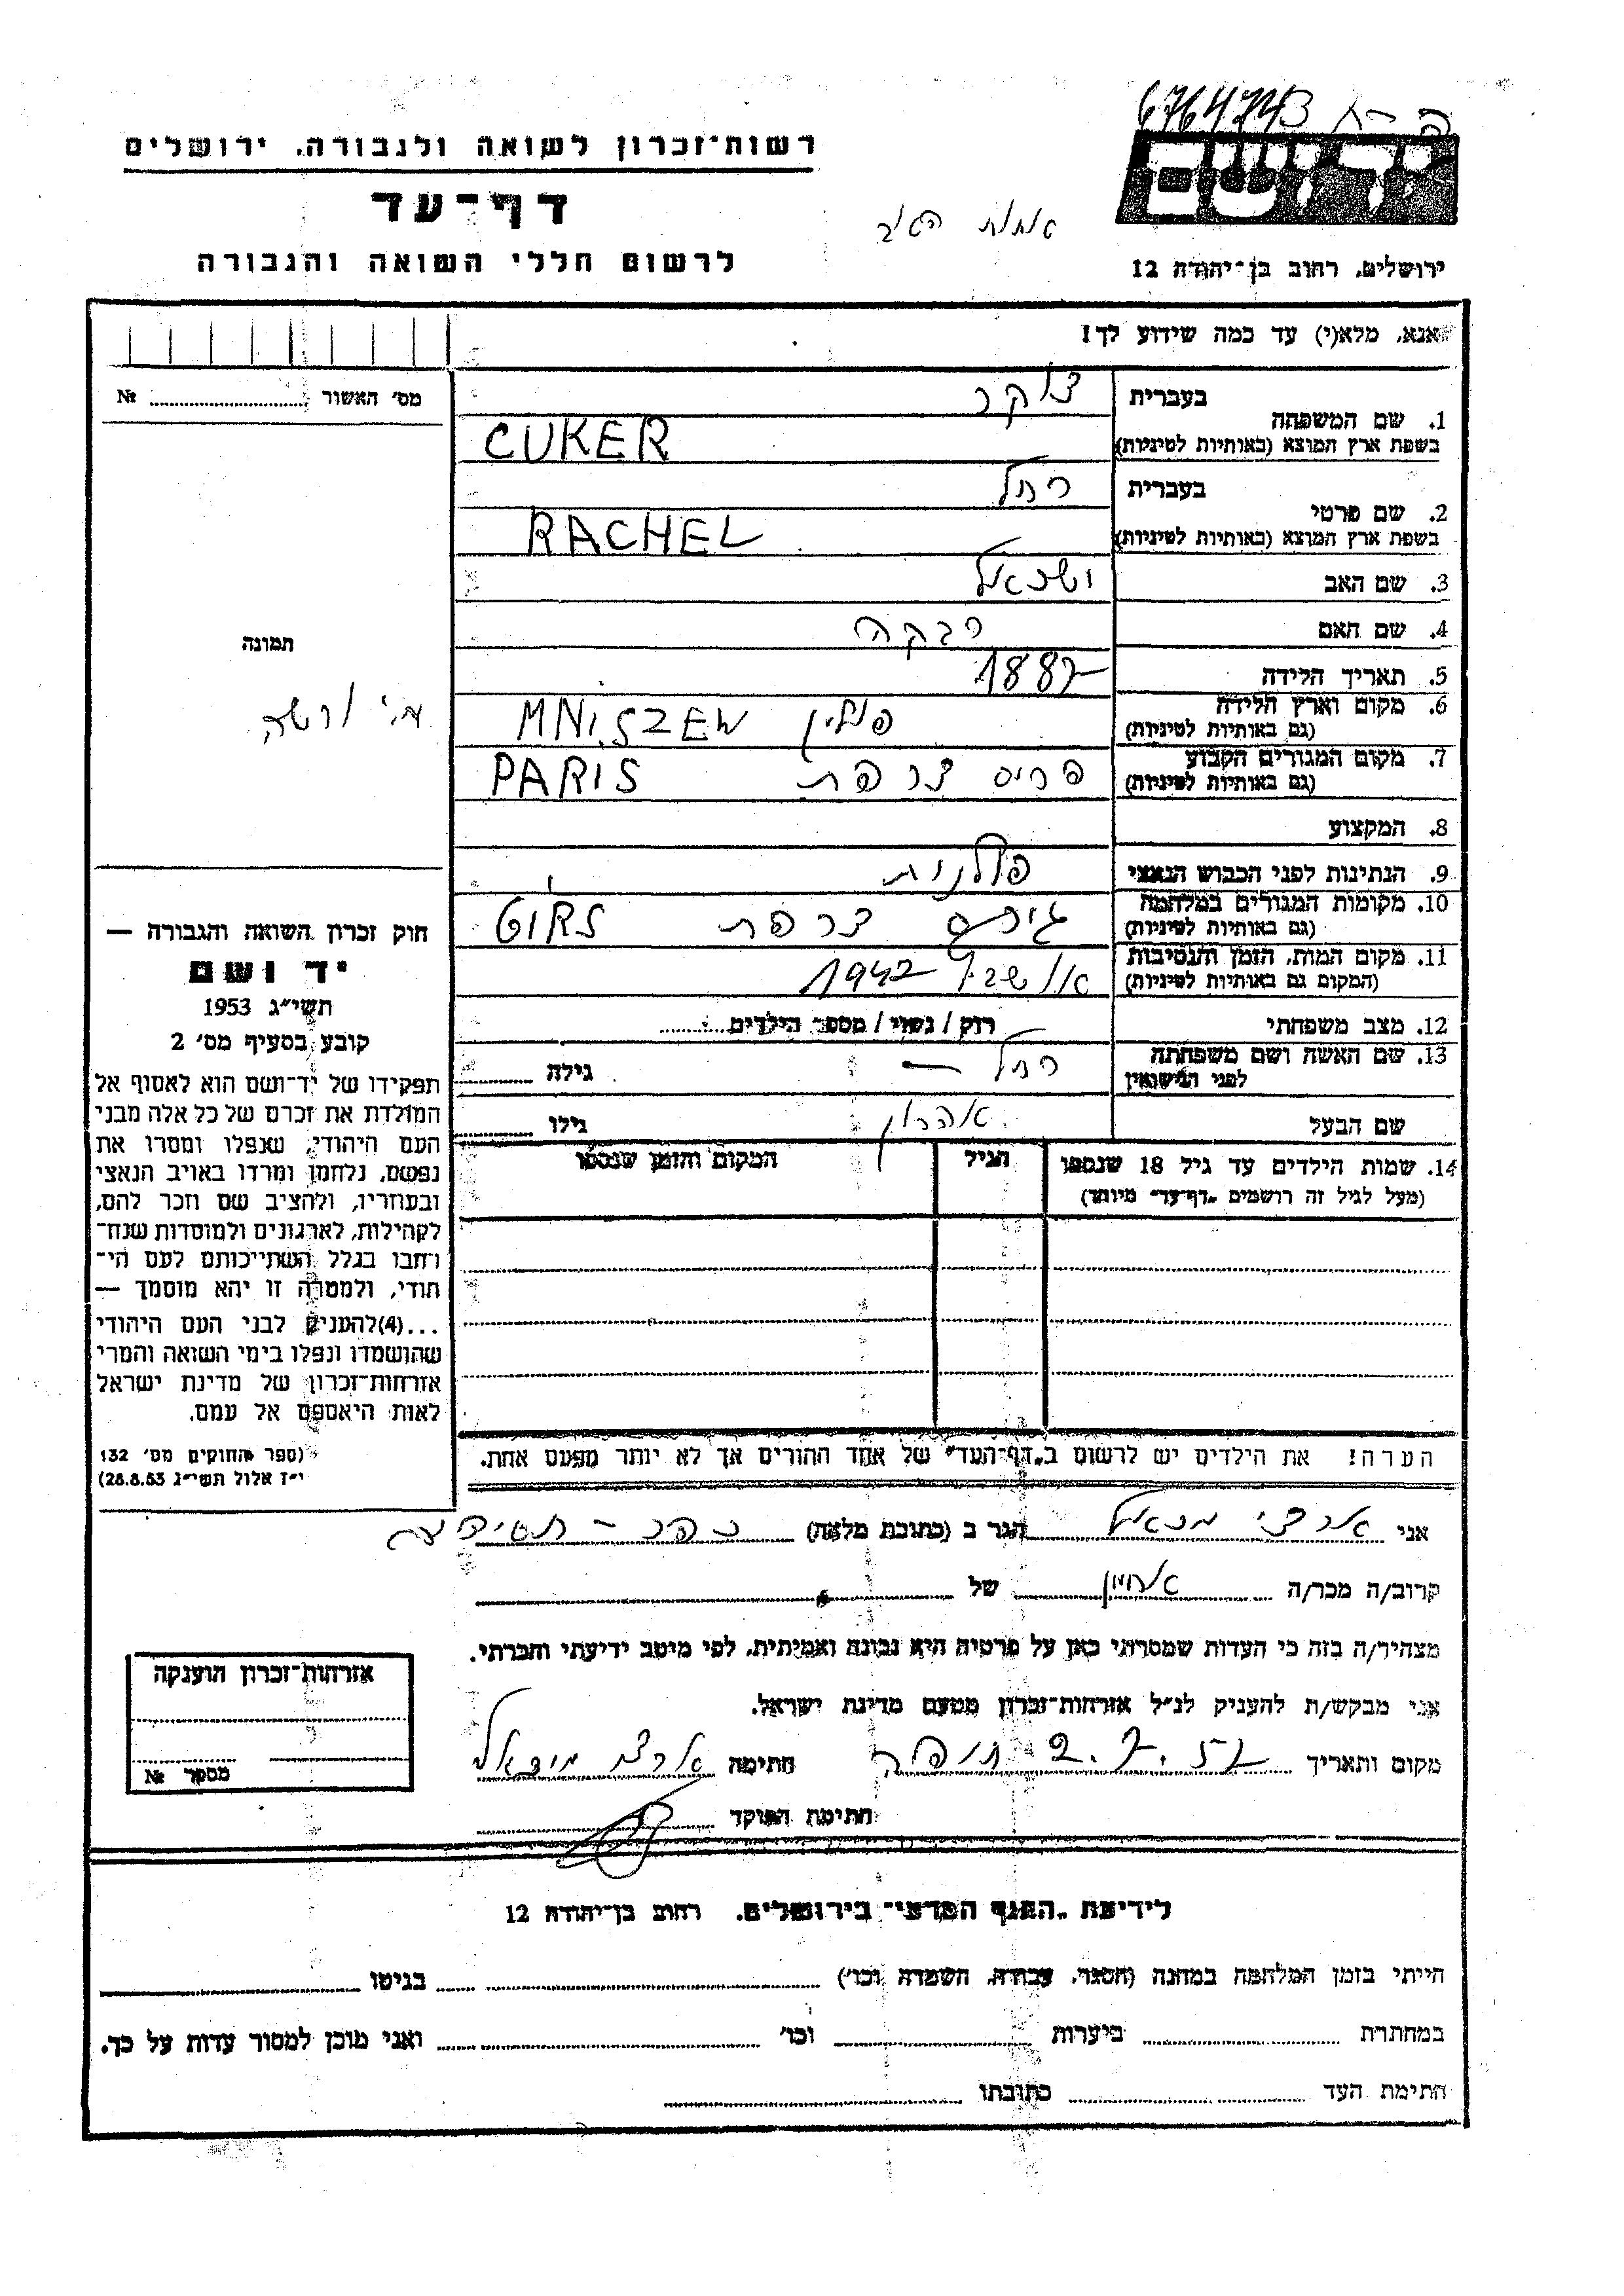 6764743
רשות־זכרון לשואה ולגבורה, ירושלים
יד ושם
דף־עד
לרשום חללי השואה והגבורה
ירושלים, רחוב בן־יהודה 12
אנא, מלא(י) עד כמה שידוע לך!
מס׳ האשור № 
1. שם המשפחה בעברית צוקר
בשפת ארץ המוצא (באותיות לטיניות) CUKER
2. שם פרטי בעברית רחל
בשפת ארץ המוצא (באותיות לטיניות) RACHEL
3. שם האב ישראל
4. שם האם רבקה
5. תאריך הלידה 1887
6. מקום וארץ הלידה (גם באותיות לטיניות) פולין MNISZEW
7. מקום המגורים הקבוע (גם באותיות לטיניות) פריס צרפת PARIS
8. המקצוע
9. הנתינות לפני הכבוש הנאצי פולנית
10. מקומות המגורים במלחמה (גם באותיות לטיניות) צרפת GIRS
11. מקום המות, הזמן והנסיבות (המקום גם באותיות לטיניות) אושביץ 1942
12. מצב משפחתי רוק / נשוי / מספר הילדים
13. שם האשה ושם משפחתה לפני הנישואין רחל — גילה
שם הבעל אהרון גילו
14. שמות הילדים עד גיל 18 שנספו הגיל המקום והזמן שנספו
(מעל לגיל זה רושמים „דף־עד״ מיוחד)
הערה! את הילדים יש לרשום ב„דף־העד״ של אחד ההורים אך לא יותר מפעם אחת.
תמונה
חוק זכרון השואה והגבורה —
יד ושם
תשי״ג 1953
קובע בסעיף מס׳ 2
תפקידו של יד־ושם הוא לאסוף אל
המולדת את זכרם של כל אלה מבני
העם היהודי, שנפלו ומסרו את
נפשם, נלחמו ומרדו באויב הנאצי
ובעוזריו, ולהציב שם וזכר להם,
לקהילות, לארגונים ולמוסדות שנח־
רחבו בגלל השתייכותם לעם הי־
הודי, ולמטרה זו יהא מוסמך —
...(4)להעניק לבני העם היהודי
שהושמדו ונפלו בימי השואה והמרי
אזרחות־זכרון של מדינת ישראל
לאות היאספם אל עמם.
(ספר החוקים מס׳ 132
י״ז אלול תשי״ג 28.8.53)
אני ארצי מיכאל הגר ב (כתובת מלאה) כפר־חסידים
קרוב/ה מכר/ה של
מצהיר/ה בזה כי העדות שמסרתי כאן על פרטיה היא נכונה ואמיתית, לפי מיטב ידיעתי והכרתי.
אני מבקש/ת להעניק לנ״ל אזרחות־זכרון מטעם מדינת ישראל.
מקום ותאריך חיפה 2.7.57 חתימה ארצי מיכאל
חתימת הפוקד
אזרחות־זכרון הוענקה
מספר №
לידיעת „האגף המדעי״ בירושלים, רחוב בן־יהודה 12
הייתי בזמן המלחמה במחנה (הסגר, עבודה, השמדה וכו׳) בגיטו
במחתרת ביערות וכו׳ ואני מוכן למסור עדות על כך.
חתימת העד כתובתו